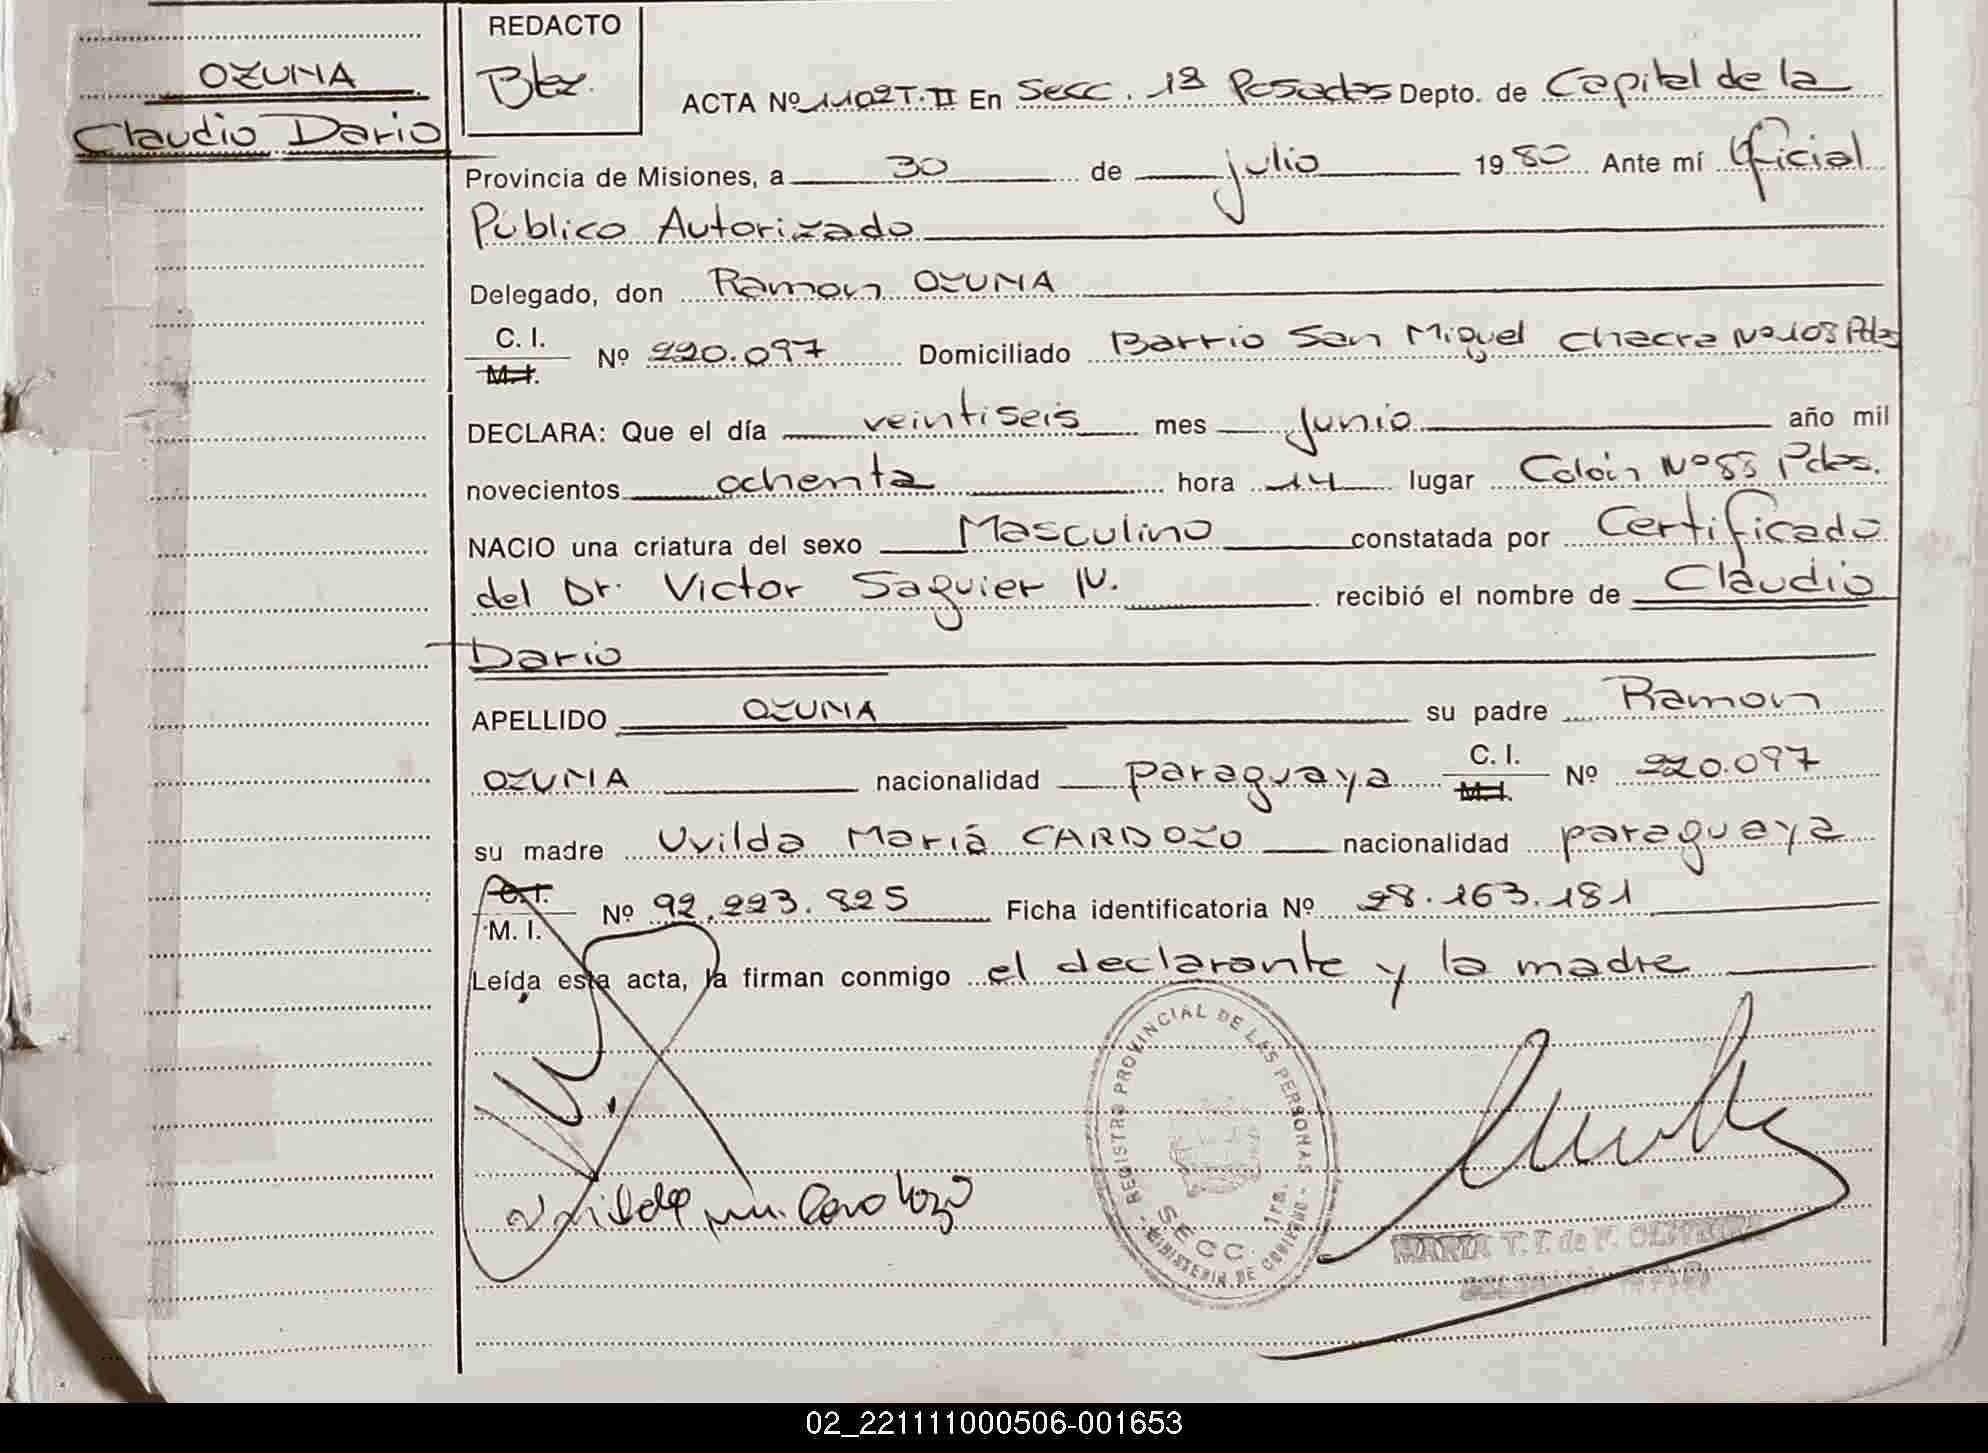 OZUNA
Claudio Dario
REDACTO
Btez.
ACTA Nº 1102 T. II En Secc. 1ª Posadas Depto. de Capital de la
Provincia de Misiones, a 30 de julio 1980 Ante mí Oficial
Público Autorizado
Delegado, don Ramon OZUNA
C. I.
M. I.
Nº 220.097 Domiciliado Barrio San Miguel Chacra Nº 103 Pdas
DECLARA: Que el día veintiseis mes junio año mil
novecientos ochenta hora 14 lugar Colón Nº 55 Pdas.
NACIO una criatura del sexo Masculino constatada por Certificado
del Dr. Victor Saguier N. recibió el nombre de Claudio
Dario
APELLIDO OZUNA su padre Ramon
OZUNA nacionalidad paraguaya C. I. M. I. Nº 220.097
su madre Uvilda Mariá CARDOZO nacionalidad paraguaya
C. I.
M. I.
Nº 92.223.825 Ficha identificatoria Nº 28.163.181
Leída esta acta, la firman conmigo el declarante y la madre
REGISTRO PROVINCIAL DE LAS PERSONAS
MINISTERIO DE GOBIERNO
SECC. 1ra.
MARIA T. de
02_221111000506-001653